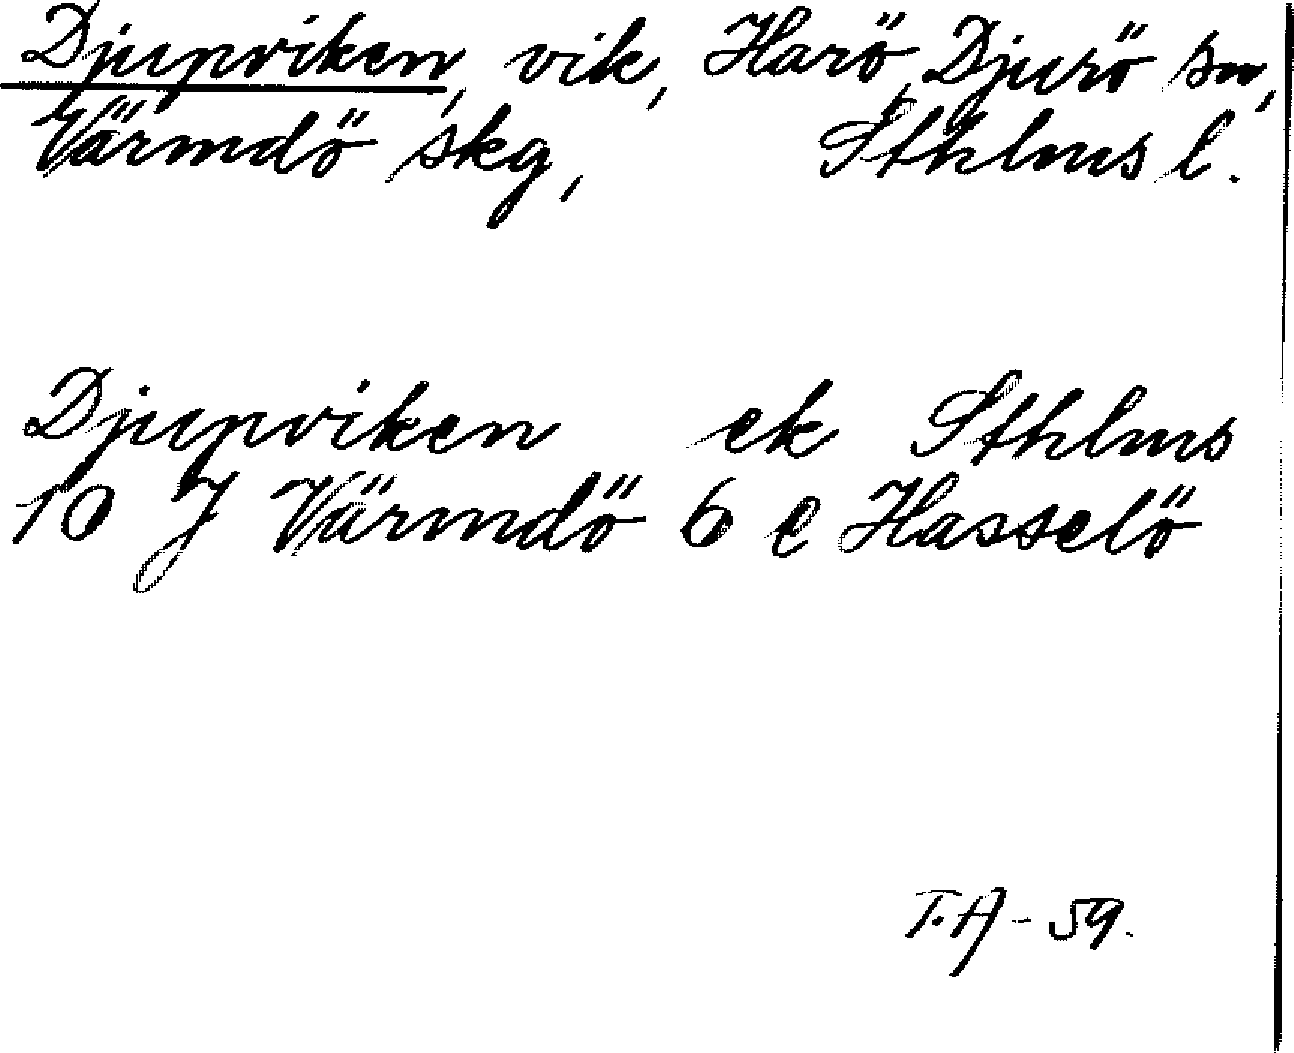 Djupviken, vik, Harö, Djurö sn,
Värmdö skg, Sthlms l.
Djupviken ek Sthlms
10 J Värmdö 6 e Hasselö
T.A - 59.